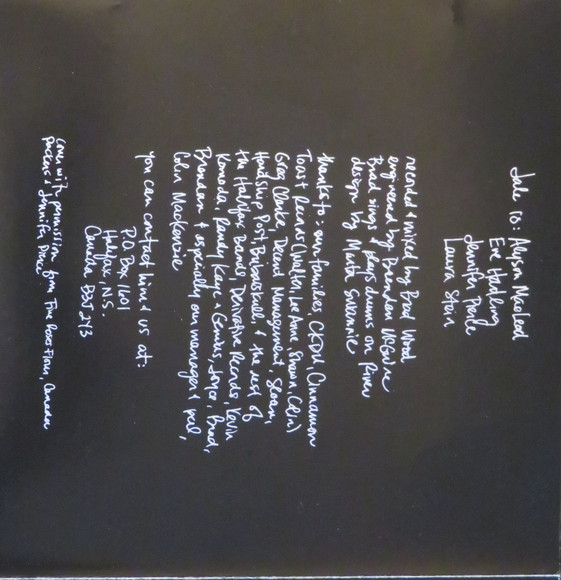 Jale is: Alyson MacLeod
Eve Hartling
Jennifer Pierce
Laura Stein
recorded & mixed by Brad Wood
engineered by Brendan McGuire
Brad sings & plays drums on River
design by
thanks to: our families, CKDU, Cinnamon
Toast Records (Walter, Le Anne, Shawn, Colin)
Greg Clarke, Management, Sloan,
Hardship Post, Bubaiskull & the rest of
the Halifax Bands, Derivative Records, Kevin
Komoda, Randy Kaye & Genius, Joyce, Brad,
Brendan & especially our manager & pal,
Colin Mackenzie
you can contact him & us at:
P.O. Box 1201
Halifax, N.S.
Canada B3J 2Y3
cover with permission from Canadian
& Jennifer Pierce